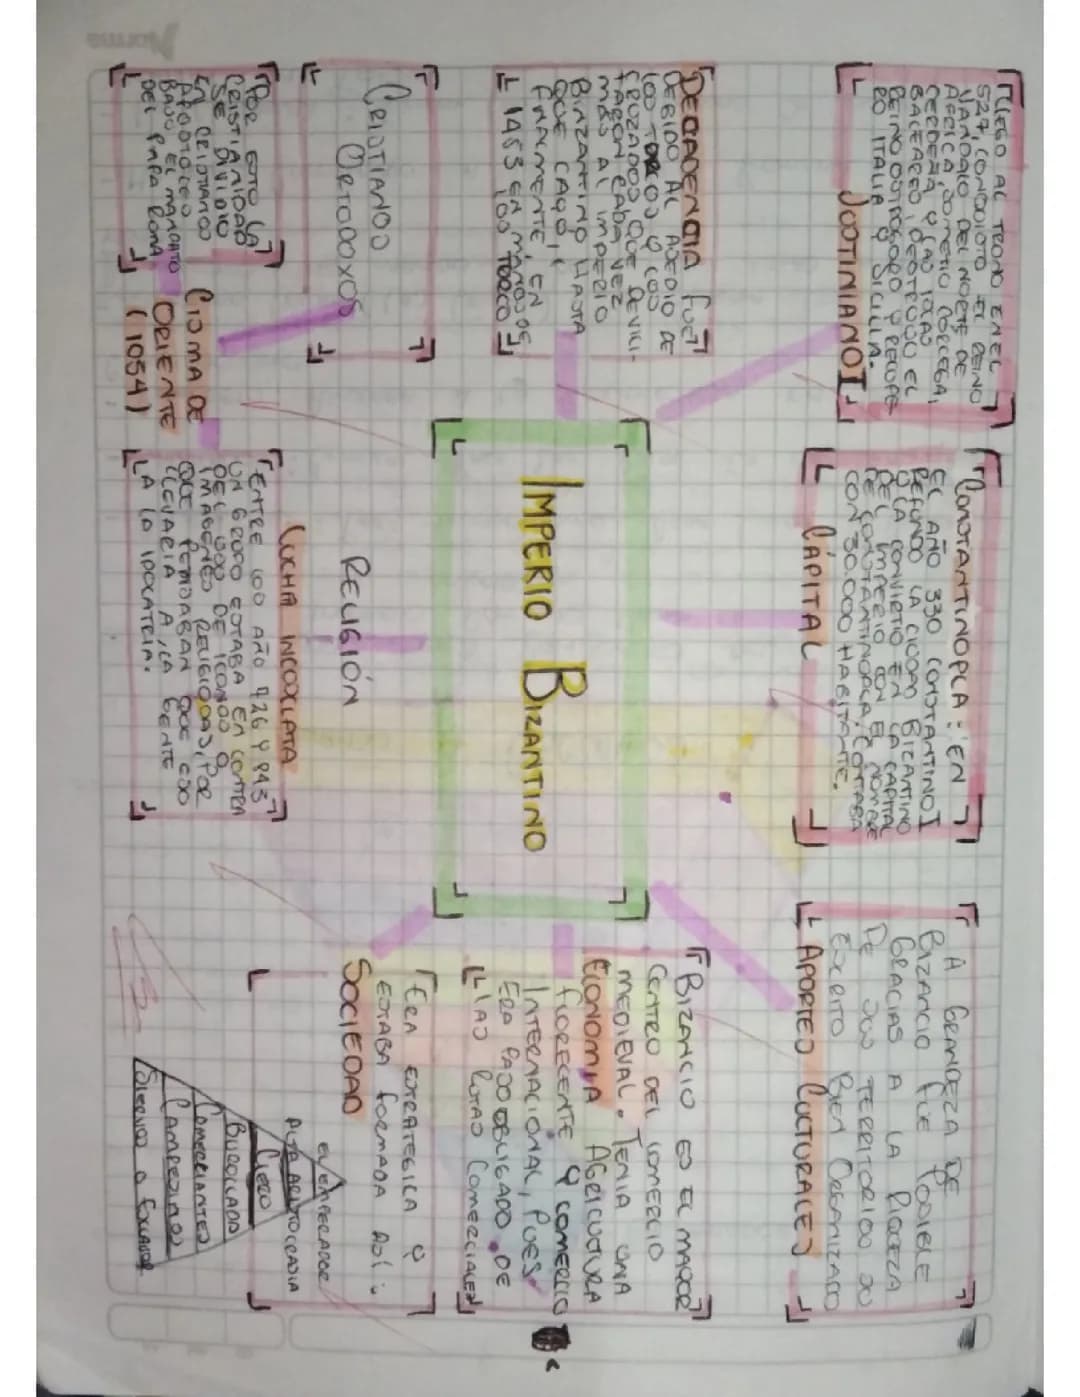 IMPERIO BIZANTINO
LLEGO AL TRONO EN EL
527, CONQUISTO EL REINO
VANDALO DEL NORTE DE
AFRICA, SOMETIO CORCEGA,
CERDEÑA Y LAS ISLAS
BALEARES, DESTRUYO EL
REINO OSTROGODO Y RECUPE
RO ITALIA Y SICILIA.
JUSTINIANO I
CONSTANTINOPLA: EN
EL AÑO 330 CONSTANTINO I
REFUNDO LA CIUDAD BIZANTINO
Y LA CONVIRTIO EN LA CAPITAL
DEL IMPERIO CON EL NOMBRE
DE CONSTANTINOPLA, CONTABA
CON 30.000 HABITANTE.
CÁPITAL
A GRANDEZA DE
BIZANCIO FUE POSIBLE
GRACIAS A LA RIQUEZA
DE SUS TERRITORIOS SU
EXERITO BIEN ORGANIZADO
APORTES CULTURALES
DECADENCIA FUE
DEBIDO AL ASEDIO DE
LOS TURCOS Y LOS
CRUZADOS QUE DEVILI-
TARON CADA VEZ
MAS AL IMPERIO
BINZANTINO HASTA
QUE CAYO,
FINALMENTE, EN
1453 EN MANOS DE
LOS TURCO
BIZANCIO ES EL MAYOR
CENTRO DEL COMERCIO
MEDIEVAL. TENIA UNA
ECONOMIA AGRICULTURA
FLORECENTE Y COMERCIO
INTERNACIONAL, PUES
ERA PASO OBLIGADO DE
LAS RUTAS COMERCIALES
CRISTIANOS
ORTODOXOS
RELIGIÓN
ERA ESTRATEGICA Y
ESTABA FORMADA ASI:
SOCIEDAD
EL EMPERADOR
ALTA ARISTOCRACIA
CLERO
BUROCRACIO
COMERCIANTES
CAMPESINOS
SIERVOS O ESCLAVOS
POR ESTO LA
CRISTIANIDAD
SE DIVIDIO
EN CRISTIANOS
APOSTOLICOS
BAJO EL MANDATO
DEL PAPA ROMA
CISMA DE
ORIENTE
(1054)
LUCHA INCOCLATA
ENTRE LOS AÑO 726 Y 843
UN GRUPO ESTABA EN CONTRA
DEL USO DE ICONOS O
IMAGENES RELIGIOSAS, POR
QUE PENSABAN QUE ESO
LLEVARIA A LA GENTE
A LA IDOLATRIA.
Norma